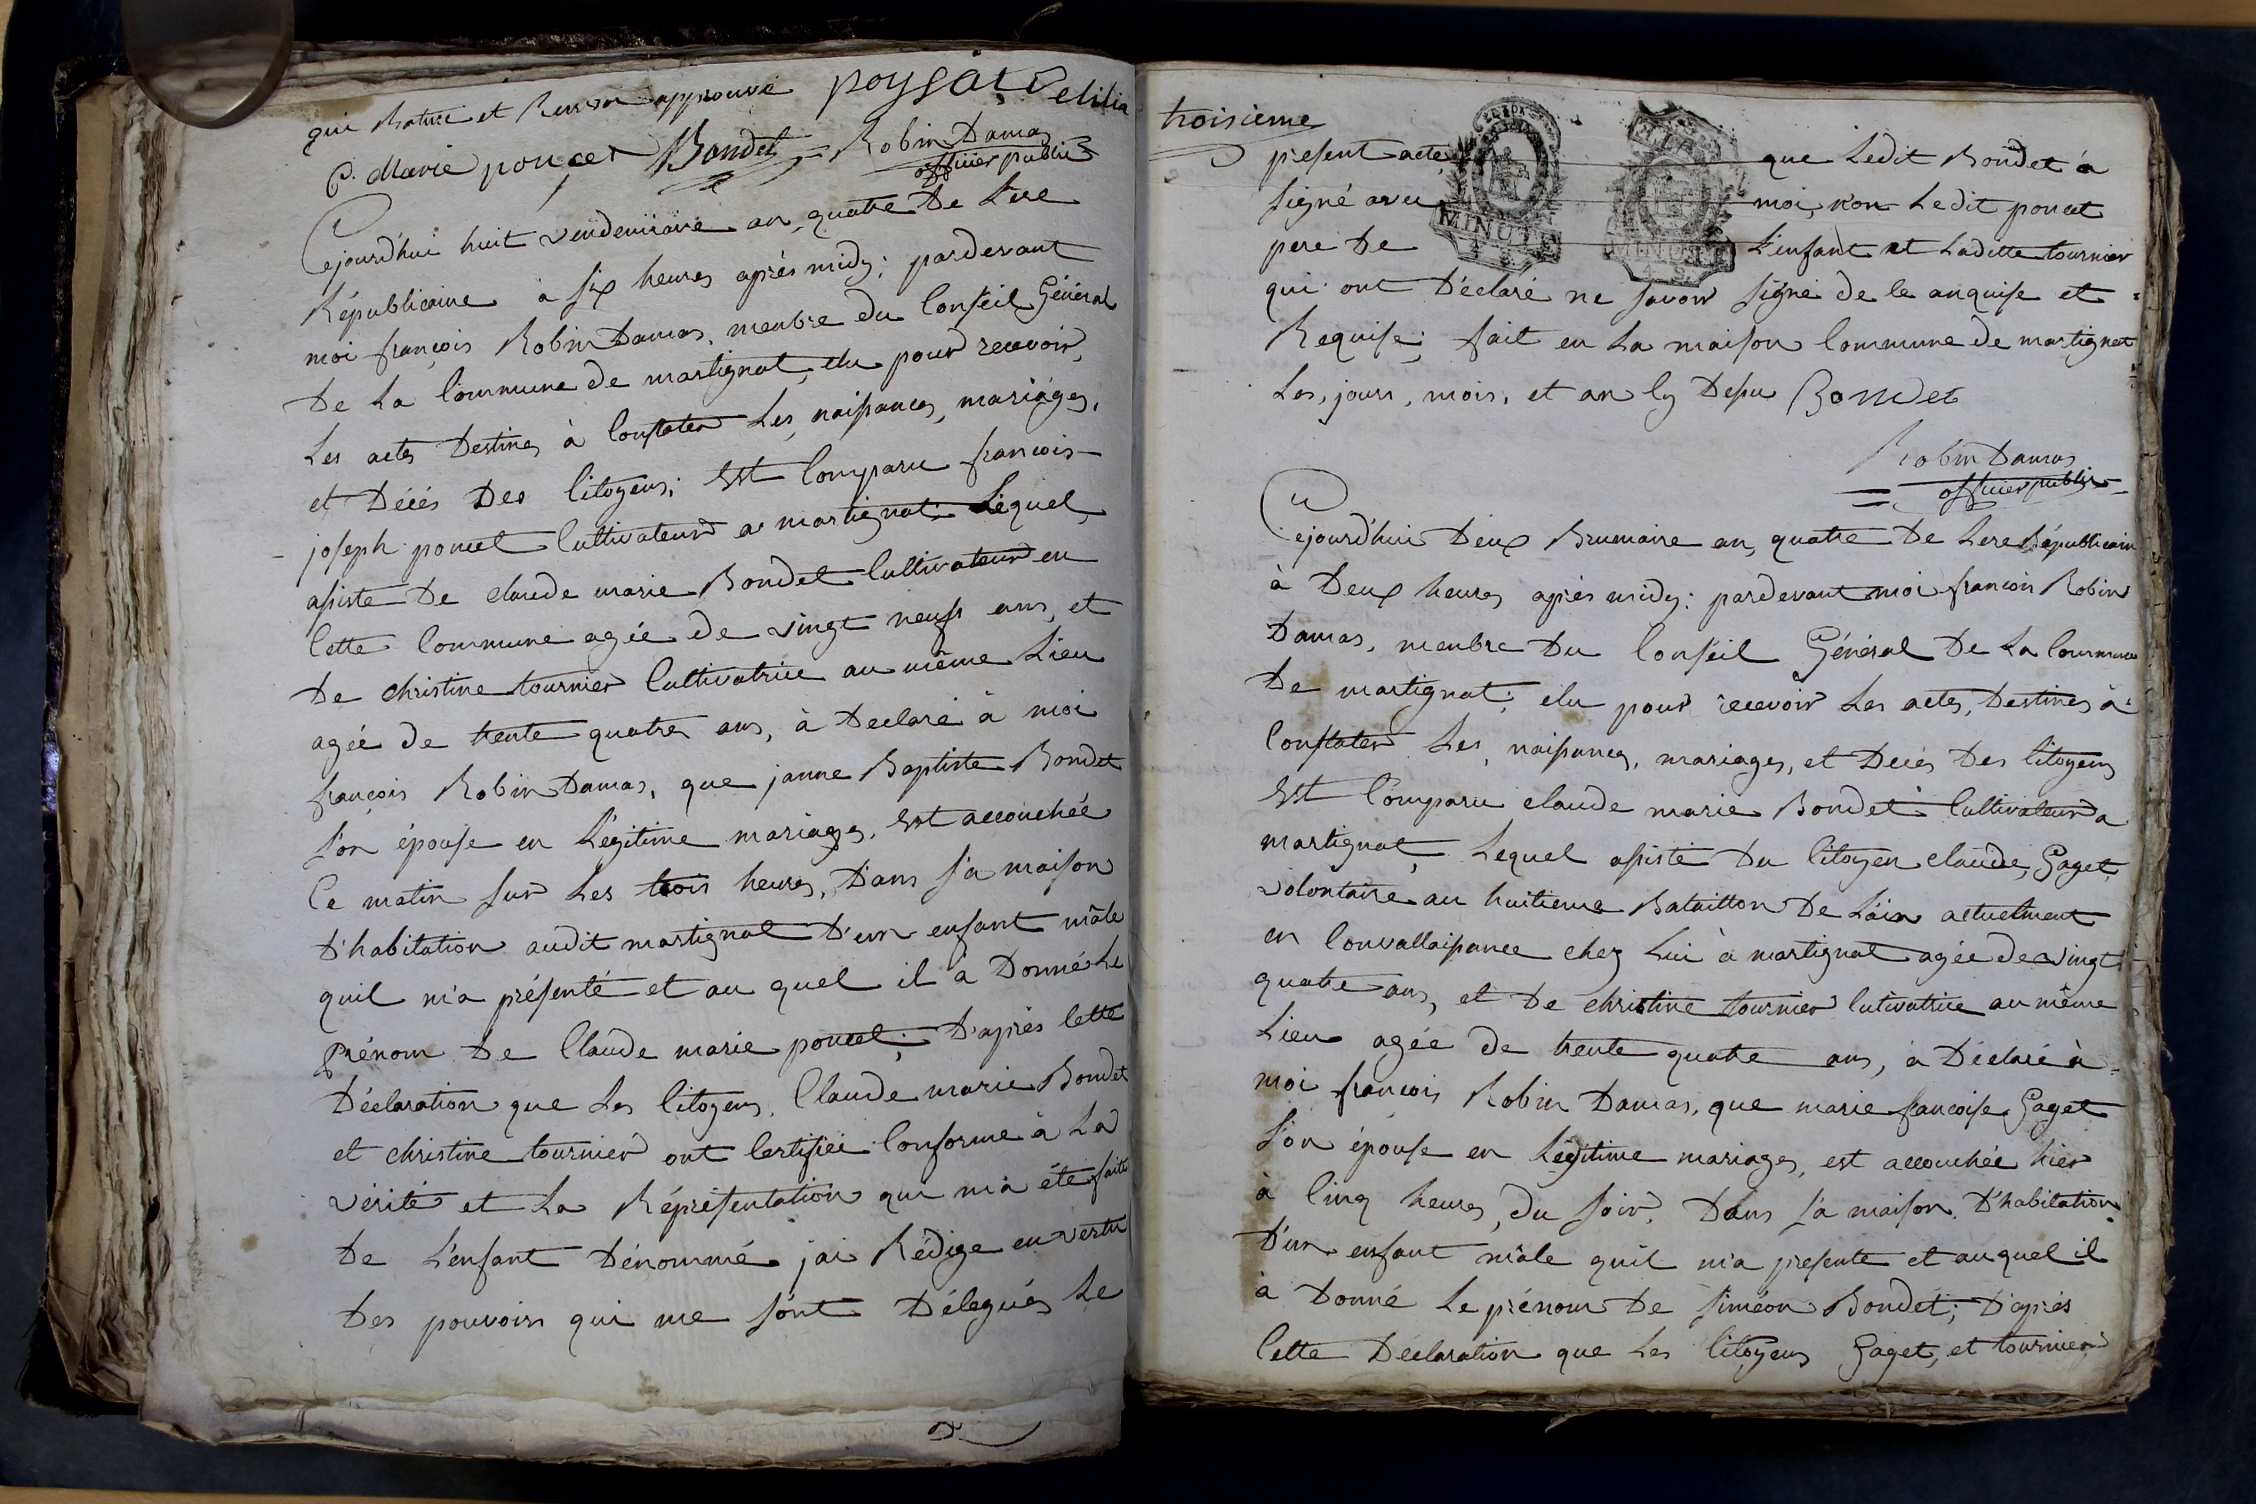 qui Rature et Renvoi approuvé poysat Delilia
C. Marie ponces Bondet Robin Damas
officier public
Cejourd'hui huit vendemiaire an, quatre De Lere
Républicaine à six heures après midy; pardevant
moi françois Robin Damas, menbre du Conseil Général
De La Commune de martignat, elu pour recevoir,
Les actes Destines à Constater Les, naissances, mariages,
et Décés Des Citoyens; Est Comparu françois
joseph poncet Cultivateur a martignat; Lequel,
assiste De claude marie Bondet Cultivateur en
Cette Commune agée de vingt neuf ans, et
De christine tournier Cultivatrice au même Lieu
agée de trente quatre ans, à Declaré à moi
françois Robin Damas, que janne Baptiste Bondet
son épouse en Légitime mariages, est accouchée
Ce matin sur Les trois heures, Dans sa maison
D'habitation audit martignat D'un enfant mâle
quil m'a présenté et au quel il à Donné Le
Prénom De Claude marie poncet; D'après Cette
Déclaration que Les Citoyens, Claude marie Bondet
et christine tournier ont Certifiée Conforme à La
vérité et La Réprésentation qui m'a été faite
De L'enfant Dénommé jai Rédige en vertu
Des pouvoirs qui me sont Délegués Le
troisième
present acte que Ledit Bondet à
signé avec moi, non Ledit poncet
pere De L'enfant et Laditte tournier
qui ont Déclaré ne savoir signé de le anquise et
Requise; fait en La maison Commune de martignat
Les, jours, mois, et an Cy Desu Bondet
Robin Damas
officier public
MINUTE
MINUTE
Cejourd'hui Deux Brumaire an, quatre De Lere Républicain
à Deux heures après midy: pardevant moi françois Robin
Damas, menbre Du Conseil Général De La Commune
De martignat; elu pour recevoir Les actes, Destines à
Constater Les, naissances, mariages, et Décés Des Citoyens
Est Comparu claude marie Bondet Cultivateur a
martignat, Lequel assisté Du Citoyen claude, Gaget,
volontaire au huitieme Bataillon De L'ain actuelment
en Convallaissance chez Lui à martignat agée de vingt
quatre ans, et De christine tournier Cutivatrice au même
Lieu agée de trente quatre ans, à Déclaré à
moi françois Robin Damas, que marie françoise Gaget
son épouse en Légitime mariages, est accouchée hier
à Cinq heures, du soir, Dans sa maison D'habitation
D'un enfant mâle quil m'a presenté et auquel il
à Donné Le prénom De Siméon Bondet; D'après
Cette Déclaration que Les Citoyens Gaget, et tournier